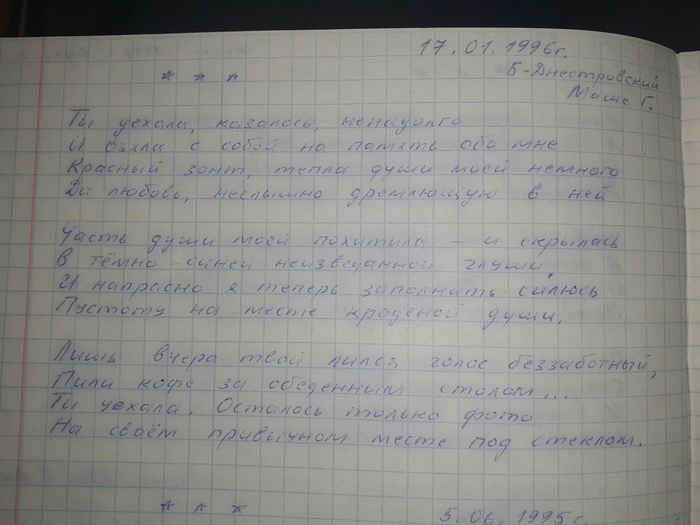 17.01.1996г.
* * *
Б-Днестровский
Маше Г.
Ты уехала, казалось, ненадолго
И взяла с собой на память обо мне
Красный зонт, тепла души моей немного
Да любовь, неслышно дремлющую в ней
Часть души моей похитила – и скрылась
В тёмно-синей неизведанной глуши,
И напрасно я теперь заполнить силюсь
Пустоту на месте краденой души.
Лишь вчера твой лился голос беззаботный,
Пили кофе за обеденным столом...
Ты уехала. Осталось только фото
На своём привычном месте под стеклом.
* * *
5.06.1995г.